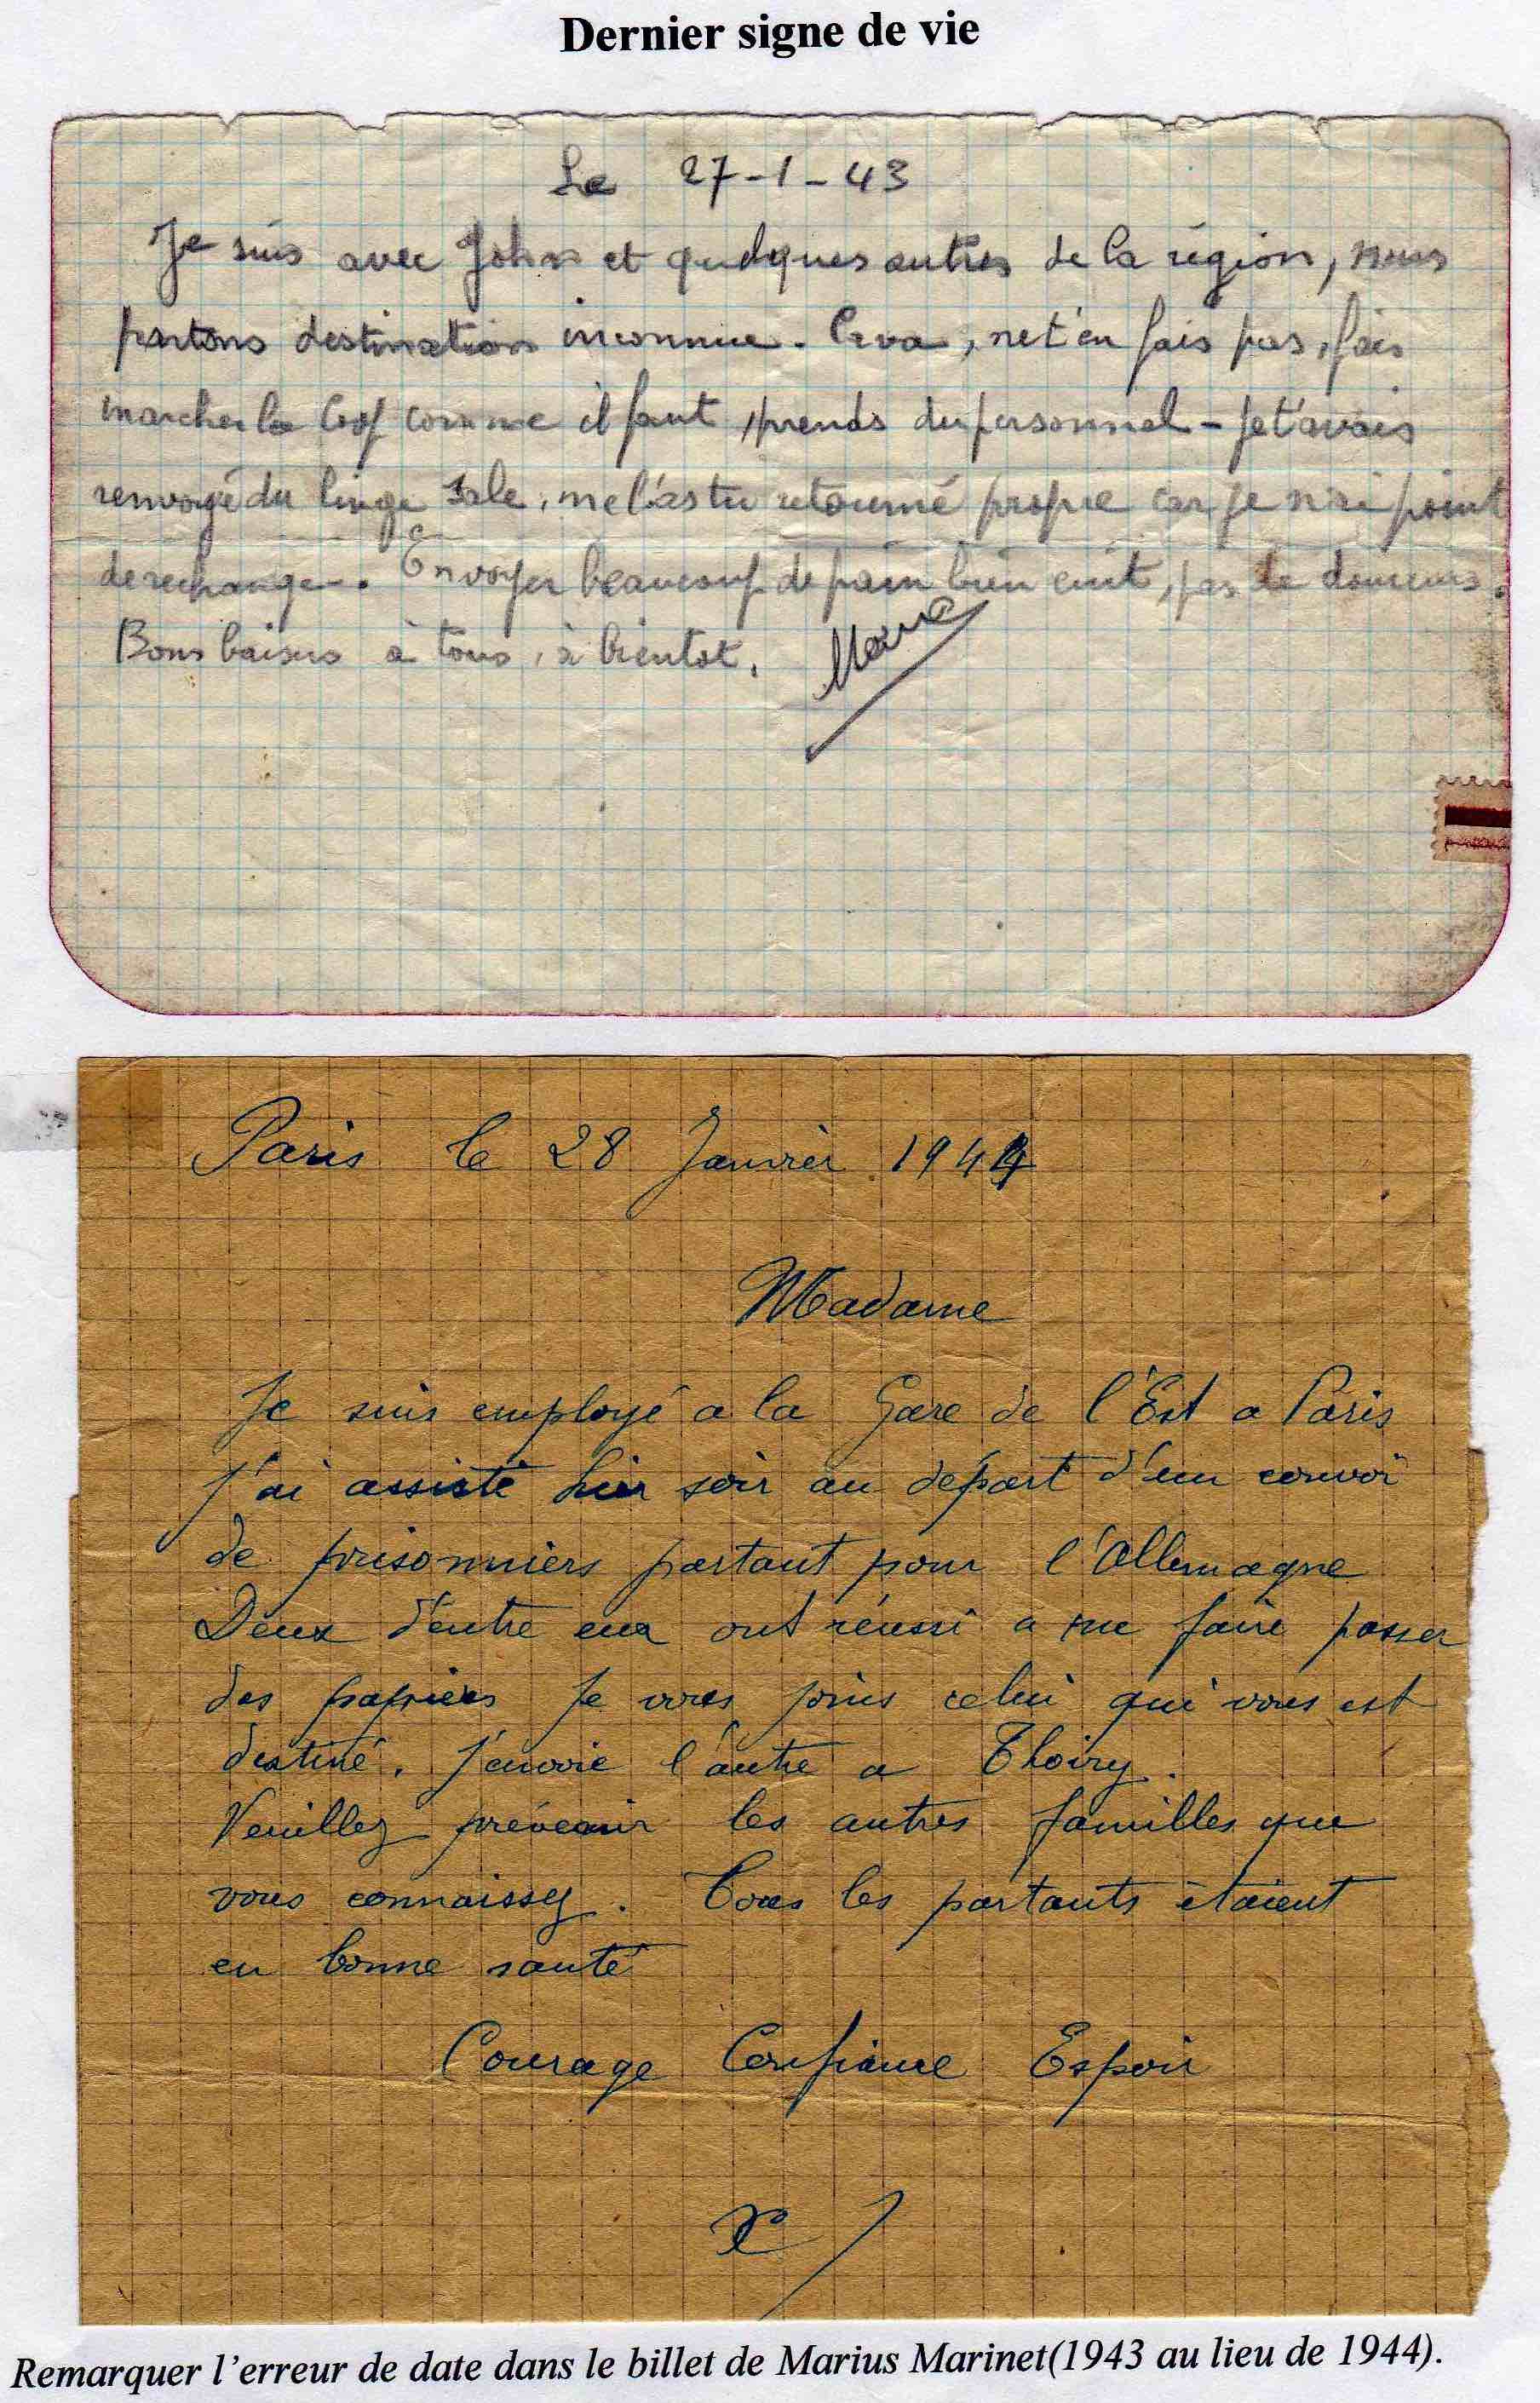 Dernier signe de vie
Le 27-1-43
Je suis avec John et quelques autres de la région, nous
partons destination inconnue. Ca va, ne t'en fais pas, fais
marcher la Coop comme il faut, prends du personnel - Je t'avais
renvoyé du linge sale, me l'as tu retourné propre car je n'ai point
de rechange. Envoyer beaucoup de pain bien cuit, pas de douceurs.
Bons baisers à tous, à bientot.
Paris le 28 Janvier 1944
Madame
Je suis employé a la Gare de l'Est a Paris
J'ai assisté hier soir au départ d'un convoi
de prisonniers partant pour l'Allemagne
Deux d'entre eux ont réussi a me faire passer
des papiers Je vous joins celui qui vous est
destiné. J'envoie l'autre a Thoiry.
Veuillez prévenir les autres familles que
vous connaissez. Tous les partants étaient
en bonne santé
Courage Confiance Espoir
X
Remarquer l'erreur de date dans le billet de Marius Marinet(1943 au lieu de 1944).